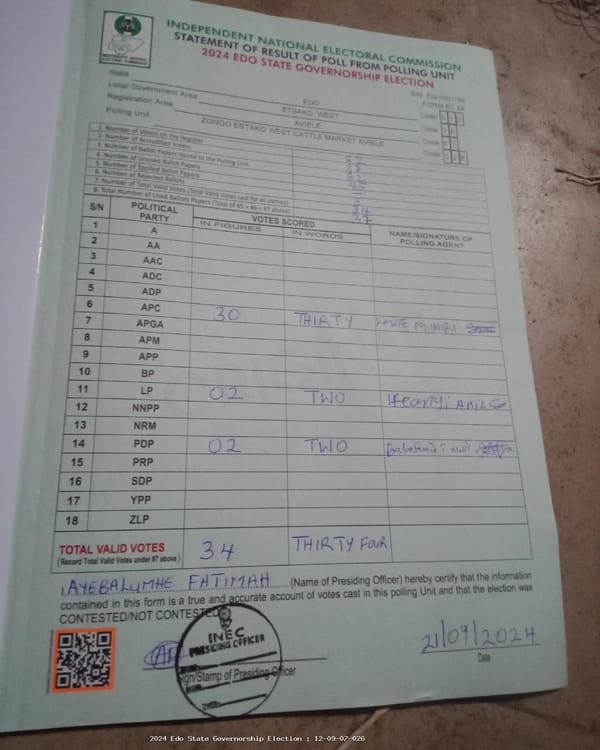 INDEPENDENT NATIONAL ELECTORAL COMMISSION
STATEMENT OF RESULT OF POLL FROM POLLING UNIT
2024 EDO STATE GOVERNORSHIP ELECTION
FORM EC 8A
State EDO Code
Local Government Area ETSAKO WEST Code
Registration Area AVIELE Code
Polling Unit ZONGO ESTAKO WEST CATTLE MARKET AVIELE Code
1. Number of Voters on the Register
2. Number of Accredited Voters
3. Number of Ballot Papers Issued to the Polling Unit
4. Number of Unused Ballot Papers
5. Number of Spoiled Ballot Papers
6. Number of Rejected Ballots
7. Number of Total Valid Votes (Total Valid Votes cast for all parties) 34
8. Total Number of Used Ballots Papers (Total of #5 + #6 + #7 above) 37
S/N POLITICAL PARTY VOTES SCORED NAME/SIGNATURE OF POLLING AGENT
IN FIGURES IN WORDS
1 A
2 AA
3 AAC
4 ADC
5 ADP
6 APC 30 THIRTY
7 APGA
8 APM
9 APP
10 BP
11 LP 02 TWO
12 NNPP
13 NRM
14 PDP 02 TWO
15 PRP
16 SDP
17 YPP
18 ZLP
TOTAL VALID VOTES 34 THIRTY FOUR
(Record Total Valid Votes under #7 above)
I, AYEBALUMHE FATIMAH (Name of Presiding Officer) hereby certify that the information
contained in this form is a true and accurate account of votes cast in this polling Unit and that the election was
CONTESTED/NOT CONTESTED
INEC
PRESIDING OFFICER
21/09/2024
Sign/Stamp of Presiding Officer Date
2024 Edo State Governorship Election : 12-09-07-026